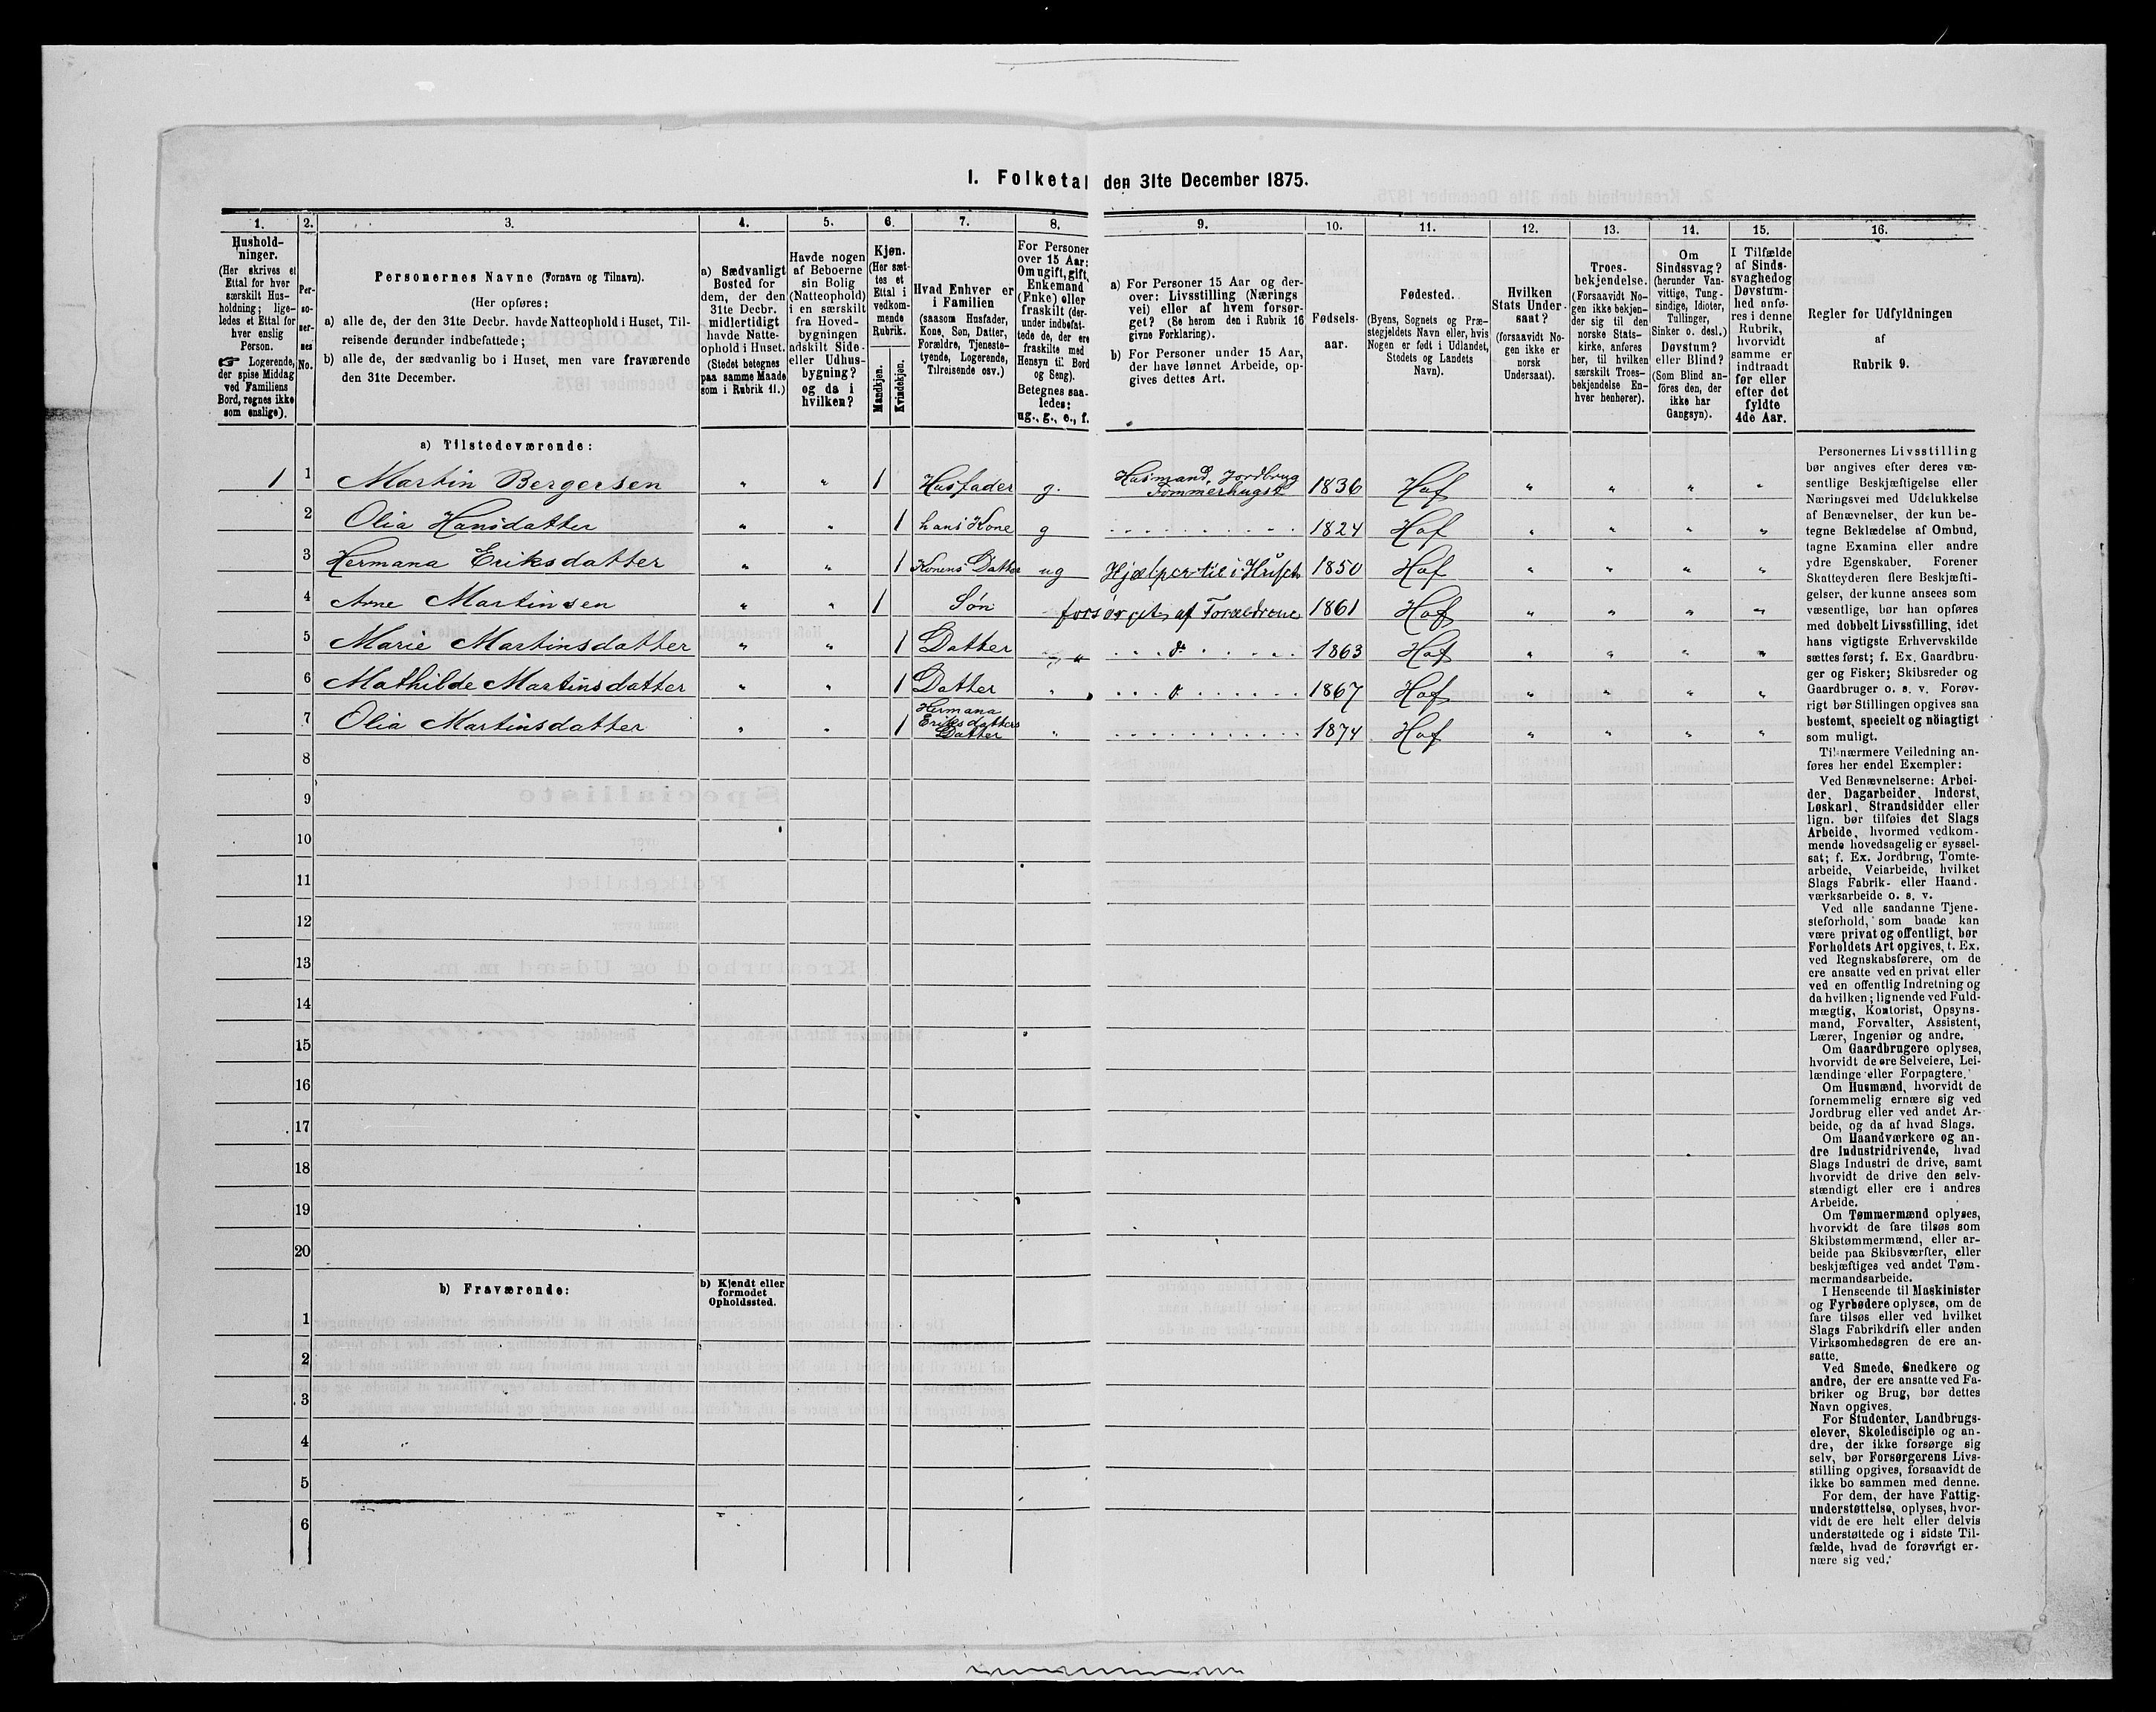 I. Folketal den 31te December 1875.
1. 2. 3. 4. 5. 6. 7. 8. 9. 10. 11. 12. 13. 14. 15. 16.
Hushold-
ninger.
(Her skrives et
Ettal for hver
særskilt Hus-
holdning; lige-
ledes et Ettal for
hver enslig
Person.
☞ Logerende,
der spise Middag
ved Familiens
Bord, regnes ikke
som enslige).
Per-
so-
ner-
nes
No.
Personernes Navne (Fornavn og Tilnavn).
(Her opføres:
a) alle de, der den 31te Decbr. havde Natteophold i Huset, Til-
reisende derunder indbefattede;
b) alle de, der sædvanlig bo i Huset, men vare fraværende
den 31te December.
a) Sædvanligt
Bosted for
dem, der den
31te Decbr.
midlertidigt
havde Natte-
ophold i Huset.
(Stedet betegnes
paa samme Maade
som i Rubrik 11.)
Havde nogen
af Beboerne
sin Bolig
(Natteophold)
i en særskilt
fra Hoved-
bygningen
adskilt Side-
eller Udhus-
bygning?
og da i
hvilken?
Kjøn.
(Her sæt-
tes et
Ettal i
vedkom-
mende
Rubrik.
Mandkjøn.
Kvindekjøn.
Hvad Enhver er
i Familien
(saasom Husfader,
Kone, Søn, Datter,
Forældre, Tjeneste-
tyende, Logerende,
Tilreisende osv.)
For Personer
over 15 Aar:
Om ugift, gift,
Enkemand
(Enke) eller
fraskilt (der-
under indbefat-
tede de, der ere
fraskilte med
Hensyn til Bord
og Seng).
Betegnes saa-
ledes:
ug., g., e., f.
a) For Personer 15 Aar og der-
over: Livsstilling (Nærings
vei) eller af hvem forsør-
get? (Se herom den i Rubrik 16
givne Forklaring).
b) For Personer under 15 Aar,
der have lønnet Arbeide, op-
gives dettes Art.
Fødsels-
aar.
Fødested.
(Byens, Sognets og Præ-
stegjeldets Navn eller, hvis
Nogen er født i Udlandet,
Stedets og Landets
Navn).
Hvilken
Stats Under-
saat?
(forsaavidt No-
gen ikke er
norsk
Undersaat).
Troes-
bekjendelse.
(Forsaavidt No-
gen ikke bekjen-
der sig til den
norske Stats-
kirke, anføres
her, til hvilken
særskilt Troes-
bekjendelse En-
hver henhører).
Om
Sindssvag?
(herunder Van-
vittige, Tung-
sindige, Idioter,
Tullinger,
Sinker o. desl.)
Døvstum?
eller Blind?
(Som Blind an-
føres den, der
ikke har
Gangsyn).
I Tilfælde
af Sinds-
svaghed og
Døvstum-
hed anfø-
res i denne
Rubrik,
hvorvidt
samme er
indtraadt
før eller
efter det
fyldte
4de Aar.
Regler for Udfyldningen
af
Rubrik 9.
a) Tilstedeværende:
1 1 Martin Bergersen " " 1 Husfader g. Husmand, Jordbrug Tømmerhugst 1836 Hof " " " "
2 Olia Hansdatter " " 1 hans Kone g 1824 Hof " " " "
3 Hermana Eriksdatter " " 1 Konens Datter ug Hjælper til i Huset 1850 Hof " " " "
4 Arne Martinsen " " 1 Søn forsørget af Forældrene 1861 Hof " " " "
5 Marie Martinsdatter " " 1 Datter " do 1863 Hof " " " "
6 Mathilde Martinsdatter " " 1 Datter " 1867 Hof " " " "
7 Olia Martinsdatter " " 1 Hermana Eriksdatters Datter " 1874 Hof " " " "
8
9
10
11
12
13
14
15
16
17
18
19
20
b) Fraværende:
b) Kjendt eller
formodet
Opholdssted.
1
2
3
4
5
6
Personernes Livsstilling
bør angives efter deres væ-
sentlige Beskjæftigelse eller
Næringsvei med Udelukkelse
af Benævnelser, der kun be-
tegne Beklædelse af Ombud,
tagne Examina eller andre
ydre Egenskaber. Forener
Skatteyderen flere Beskjæfti-
gelser, der kunne ansees som
væsentlige, bør han opføres
med dobbelt Livsstilling, idet
hans vigtigste Erhvervskilde
sættes først; f. Ex. Gaardbru-
ger og Fisker; Skibsreder og
Gaardbruger o. s. v. Forøv-
rigt bør Stillingen opgives saa
bestemt, specielt og nöiagtigt
som muligt.
Til nærmere Veiledning an-
føres her endel Exempler:
Ved Benævnelserne: Arbei-
der, Dagarbeider, Inderst,
Løskarl, Strandsidder eller
lign. bør tilføies det Slags
Arbeide, hvormed vedkom-
mende hovedsagelig er syssel-
sat; f. Ex. Jordbrug, Tomte-
arbeide, Veiarbeide, hvilket
Slags Fabrik- eller Haand-
værksarbeide o. s. v.
Ved alle saadanne Tjene-
steforhold, som baade kan
være privat og offentligt, bør
Forholdets Art opgives, t. Ex.
ved Regnskabsførere, om de
ere ansatte ved en privat eller
ved en offentlig Indretning og
da hvilken; lignende ved Fuld-
mægtig, Kontorist, Opsyns-
mand, Forvalter, Assistent,
Lærer, Ingeniør og andre.
Om Gaardbrugere oplyses,
hvorvidt de ere Selveiere, Lei-
lændinge eller Forpagtere.
Om Husmænd, hvorvidt de
fornemmelig ernære sig ved
Jordbrug eller ved andet Ar-
beide, og da af hvad Slags.
Om Haandværkere og an-
dre Industridrivende, hvad
Slags Industri de drive, samt
hvorvidt de drive den selv-
stændigt eller ere i andres
Arbeide.
Om Tømmermænd oplyses,
hvorvidt de fare tilsøs som
Skibstømmermænd, eller ar-
beide paa Skibsværfter, eller
beskjæftiges ved andet Tøm-
mermandsarbeide.
I Henseende til Maskinister
og Fyrbødere oplyses, om de
fare tilsøs eller ved hvilket
Slags Fabrikdrift eller anden
Virksomhedsgren de ere an-
satte.
Ved Smede, Snedkere og
andre, der ere ansatte ved Fa-
briker og Brug, bør dettes
Navn opgives.
For Studenter, Landbrugs-
elever, Skoledisciple og an-
dre, der ikke forsørge sig
selv, bør Forsørgerens Livs-
stilling opgives, forsaavidt de
ikke bo sammen med denne.
For dem, der have Fattig-
understøttelse, oplyses, hvor-
vidt de ere helt eller delvis
understøttede og i sidste Til-
fælde, hvad de forøvrigt er-
nære sig ved.